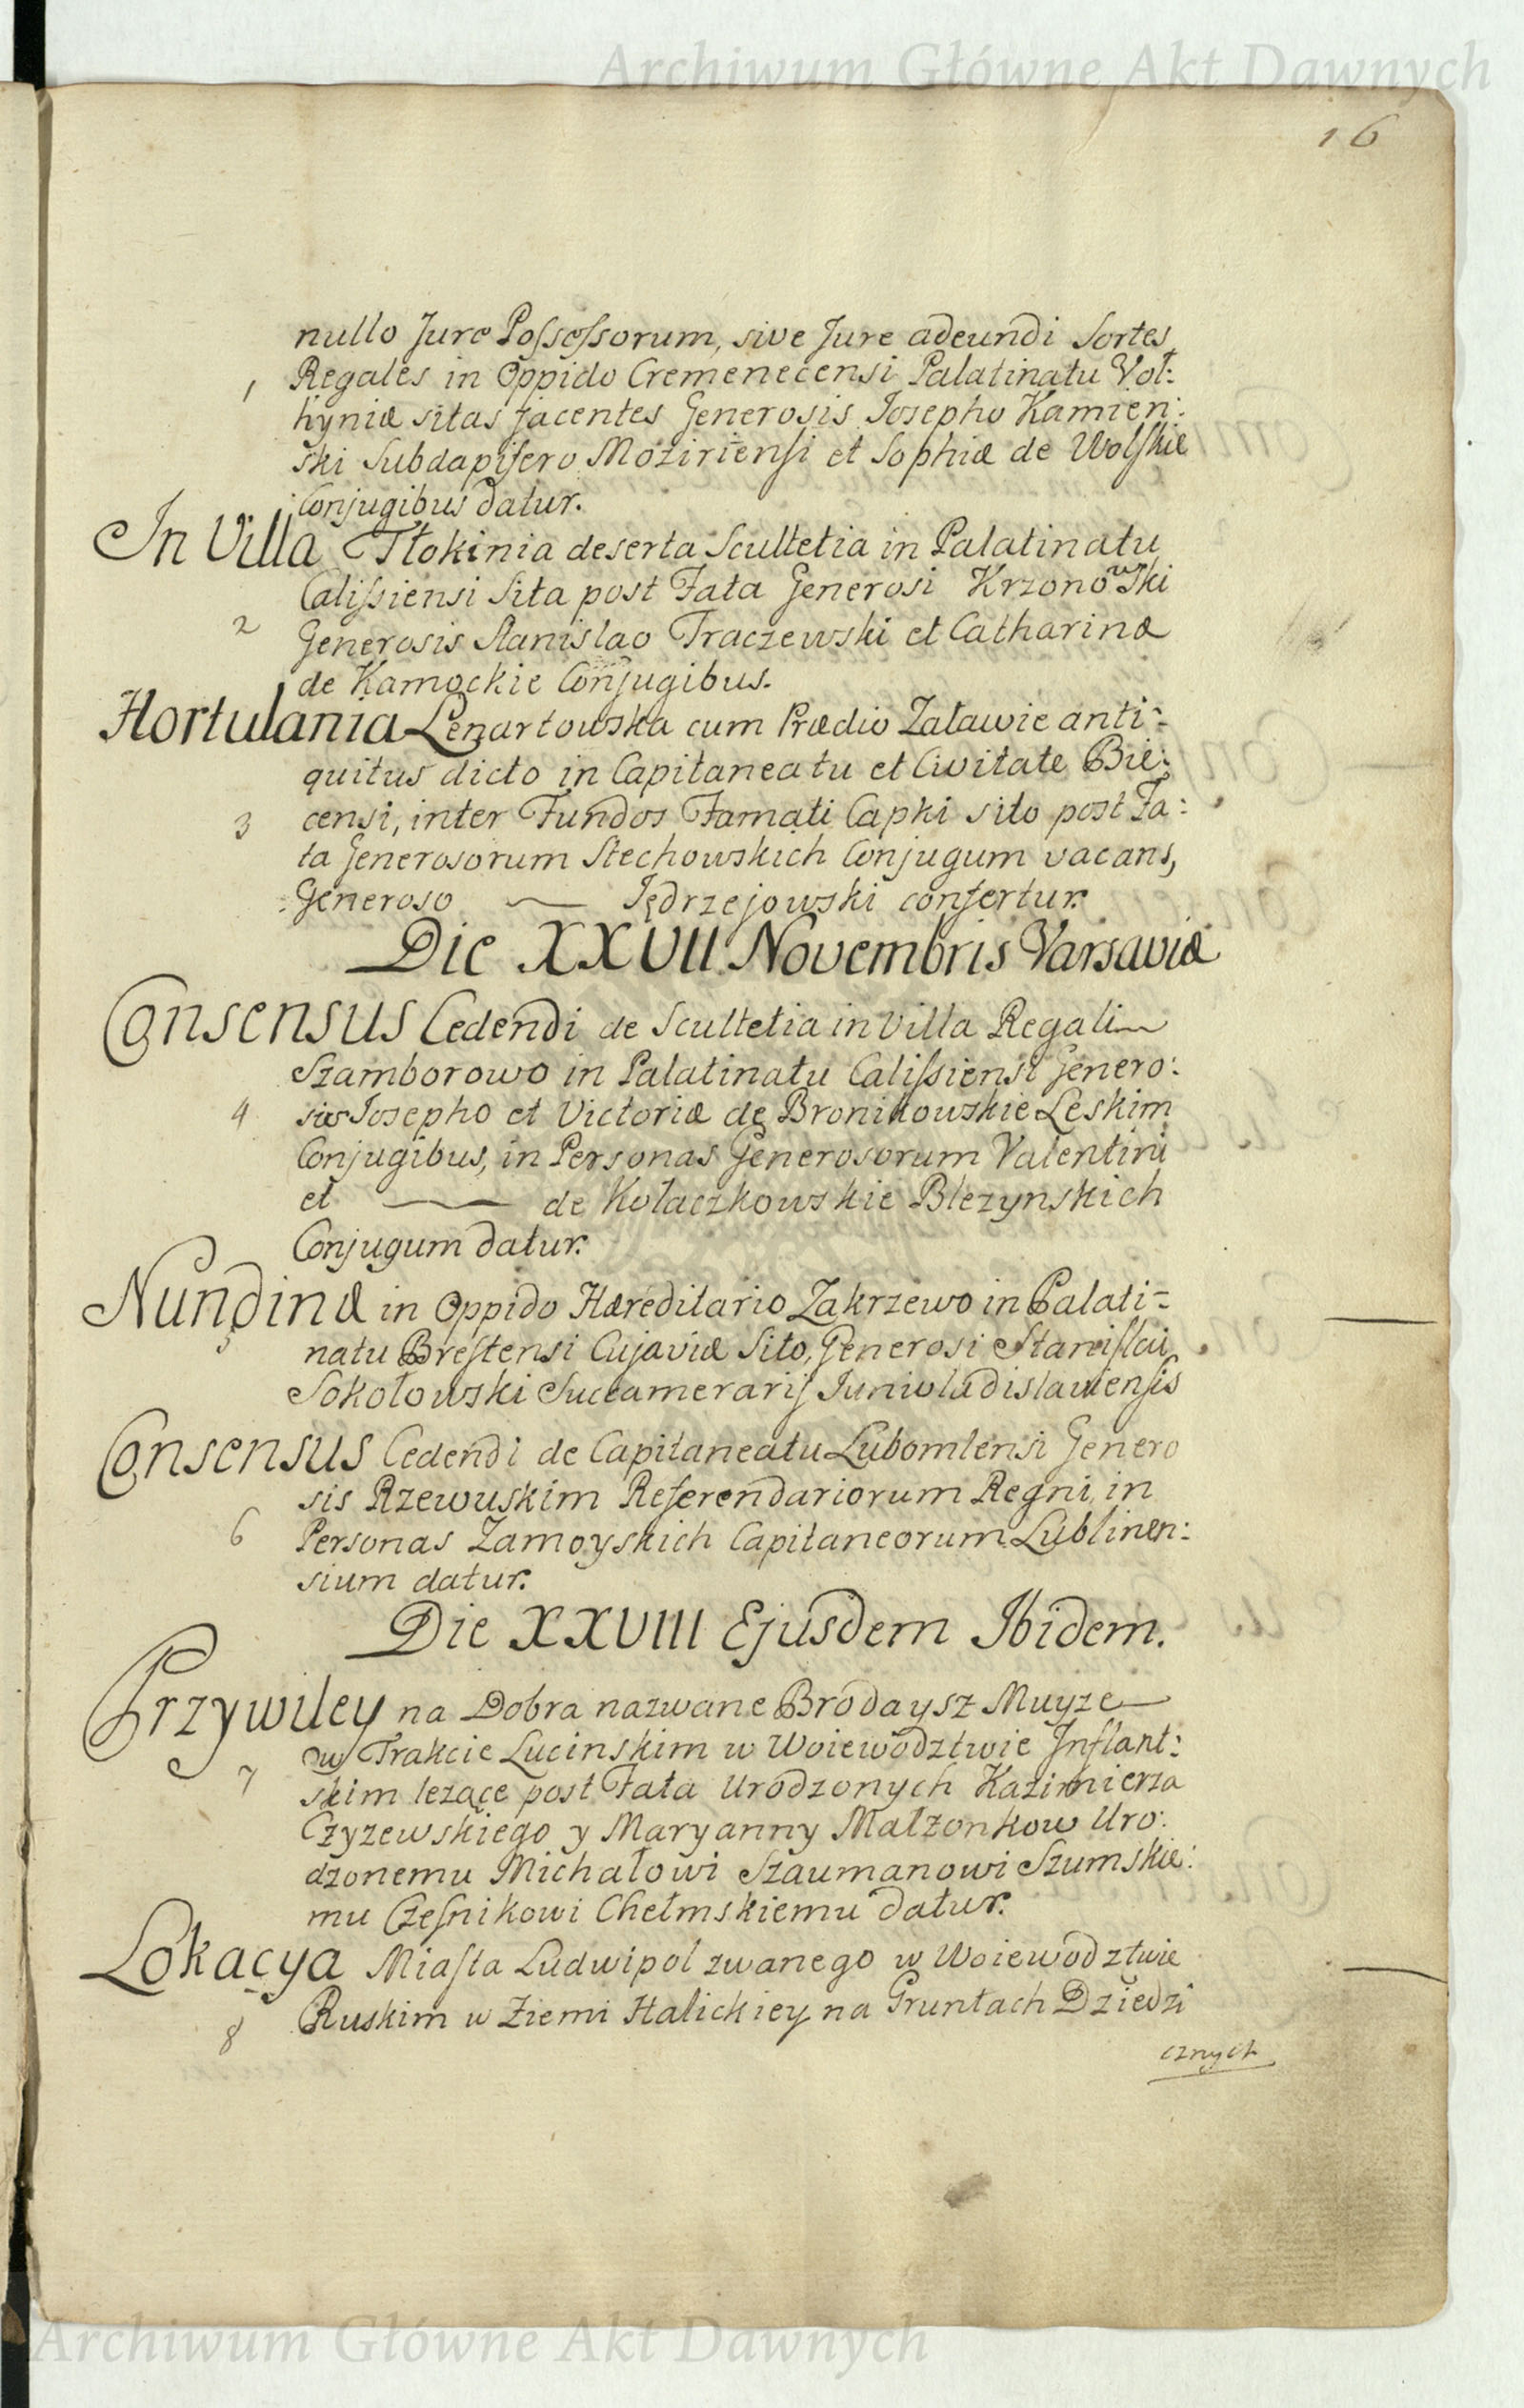 Archiwum Główne Akt Dawnych
16
nullo Jure Possessorum, sive Jure adeundi Sortes
1 Regales in Oppido Cremenecensi Palatinatu Vol:
hyniæ sitas jacentes Generosis Josepho Kamien:
ski Subdapifero Moziriensi et Sophiæ de Wolskie
Conjugibus datur.
In Villa Tłokinia deserta Scultetia in Palatinatu
Calissiensi Sita post Fata Generosi Krzonowski
2 Generosis Stanislao Traczewski et Catharinæ
de Kamockie Conjugibus.
Hortulania Lenartowska cum Prædio Załawie anti=
quitus dicto in Capitaneatu et Civitate Bie:
3 censi, inter Fundos Famati Capki sito post Fa:
ta Generosorum Stechowskich Conjugum vacans,
Generoso — Jędrzejowski confertur.
Die XXVII Novembris Varsaviæ
Consensus Cedendi de Scultetia in Villa Regali
Szamborowo in Palatinatu Calissiensi Genero:
4 sis Josepho et Victoriæ de Bronikowskie Leskim
Conjugibus, in Personas Generosorum Valentini
et — de Kołaczkowskie Blezynskich
Conjugum datur.
Nundinæ in Oppido Hæreditario Zakrzewo in Palati=
5 natu Brestensi Cujaviæ Sito, Generosi Stanislai
Sokołowski Succamerarij Junivladislaviensis
Consensus Cedendi de Capitaneatu Lubomlensi Genero
sis Rzewuskim Referendariorum Regni, in
6 Personas Zamoyskich Capitaneorum Lublinen:
sium datur.
Die XXVIII Ejusdem Ibidem.
Przywiley na Dobra nazwane Brodaysz Muyze
7 w Trakcie Lucinskim w Woiewodztwie Inflant:
skim lezące post Fata Urodzonych Kazimierza
Czyzewskiego y Maryanny Małzonkow Uro:
dzonemu Michałowi Szaumanowi Szumskie:
mu Czesnikowi Chełmskiemu datur.
Lokacya Miasta Ludwipol zwanego w Woiewodztwie
8 Ruskim w Ziemi Halickiey na Gruntach Dziedzi
cznych
Archiwum Główne Akt Dawnych